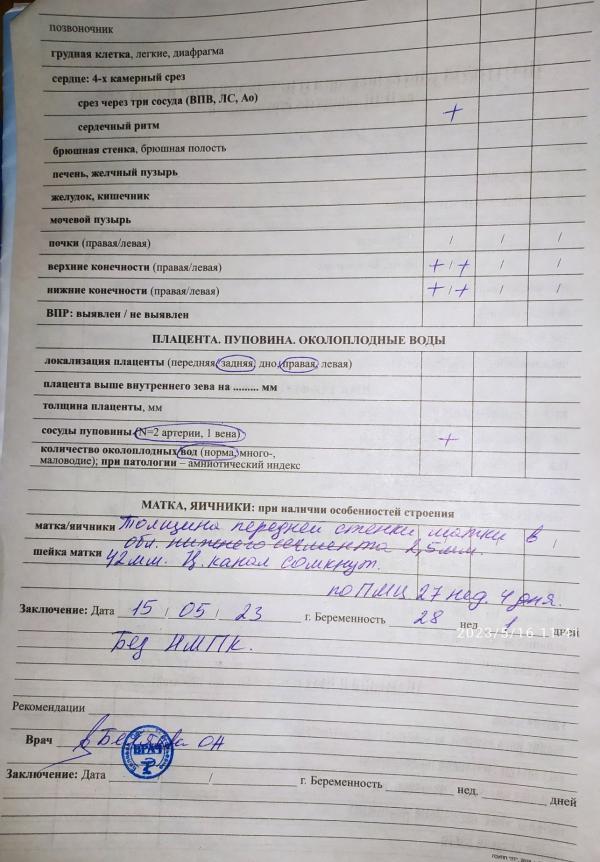 позвоночник
грудная клетка, легкие, диафрагма
сердце: 4-х камерный срез
срез через три сосуда (ВПВ, ЛС, Ао)
сердечный ритм +
брюшная стенка, брюшная полость
печень, желчный пузырь
желудок, кишечник
мочевой пузырь
почки (правая/левая) / / /
верхние конечности (правая/левая) + / + / /
нижние конечности (правая/левая) + / + / /
ВПР: выявлен / не выявлен
ПЛАЦЕНТА. ПУПОВИНА. ОКОЛОПЛОДНЫЕ ВОДЫ
локализация плаценты (передняя, задняя, дно, правая, левая)
плацента выше внутреннего зева на ......... мм
толщина плаценты, мм
сосуды пуповины (N=2 артерии, 1 вена) +
количество околоплодных вод (норма, много-,
маловодие); при патологии – амниотический индекс
МАТКА, ЯИЧНИКИ: при наличии особенностей строения
матка/яичники Толщина передней стенки матки в /
обл. нижнего сегмента 2,5мм.
шейка матки 42мм. Ц. канал сомкнут.
по ПМЦ 27 нед. 4 дня.
Заключение: Дата 15 / 05 / 23 г. Беременность 28 нед. 1 дней
2023/5/16
Без НМПК.
Рекомендации
Врач ОН
ВРАЧ
Заключение: Дата / / г. Беременность нед. дней